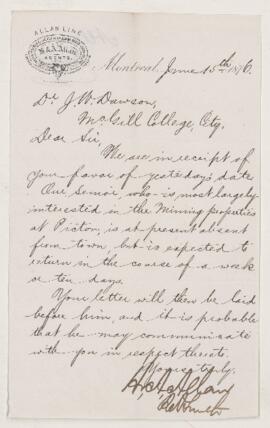 ALLAN LINE
H & A Allan
AGENTS
Montreal June 15th 1876.
Dr J. W. Dawson,
McGill College, City.
Dear Sir,
We are in receipt of
your favor of yesterday's date
Our Senior, who is most largely
interested in the Mining properties
at Pictou, is at present absent
from town, but is expected to
return in the course of a week
or ten days.
Your letter will then be laid
before him, and it is probable
that he may communicate
with you in respect thereto.
Yours truly,
H & A Allan